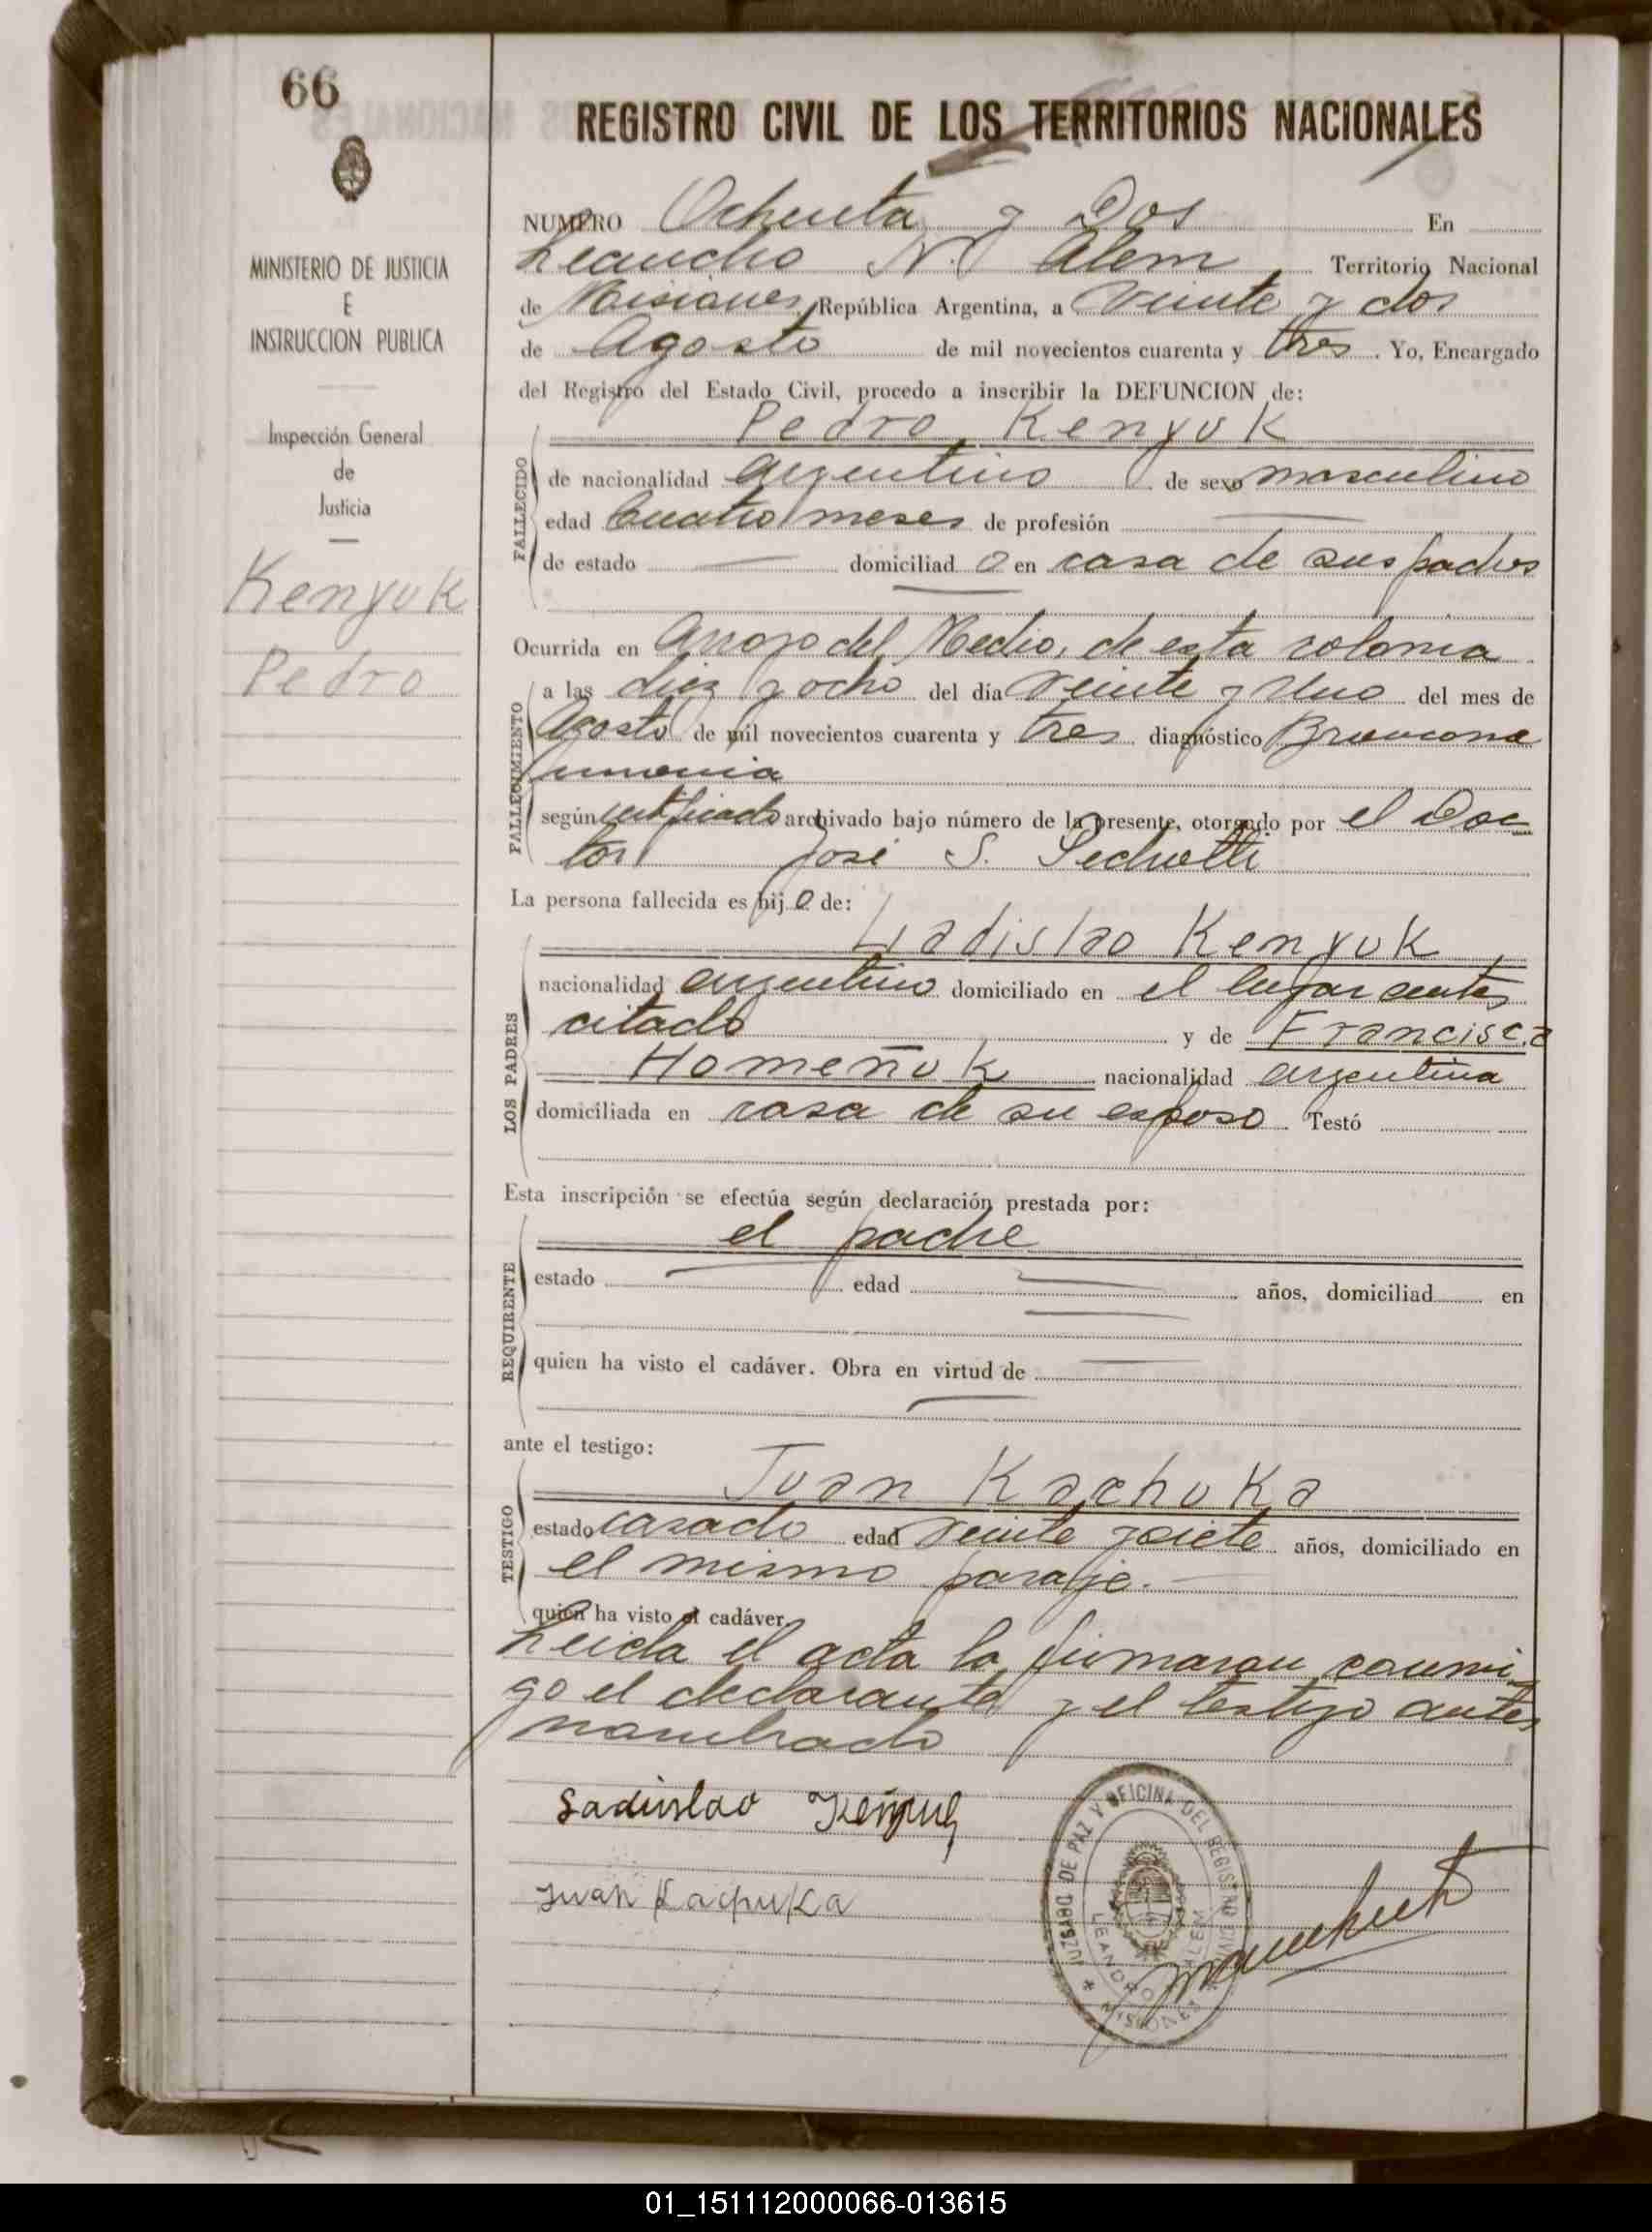 66
REGISTRO CIVIL DE LOS TERRITORIOS NACIONALES
MINISTERIO DE JUSTICIA
E
INSTRUCCION PUBLICA
Inspección General
de
Justicia
Kenyuk
Pedro
NUMERO Ochenta y Dos En
Leandro N. Alem Territorio Nacional
de Misiones, República Argentina, a veinte y dos
de Agosto de mil novecientos cuarenta y tres. Yo, Encargado
del Registro del Estado Civil, procedo a inscribir la DEFUNCION de:
Pedro Kenyuk
FALLECIDO
de nacionalidad argentino de sexo masculino
edad Cuatro meses de profesión —
de estado — domiciliado en casa de sus padres
Ocurrida en Arroyo del Medio, de esta colonia
FALLECIMIENTO
a las diez y ocho del día veinte y uno del mes de
Agosto de mil novecientos cuarenta y tres diagnóstico Bronconeu
monia
según certificado archivado bajo número de la presente, otorgado por el Doc
tor José S.
La persona fallecida es hijo de:
Ladislao Kenyuk
LOS PADRES
nacionalidad argentino domiciliado en el lugar antes
citado y de Francisca
Homeñuk nacionalidad argentina
domiciliada en casa de su esposo. Testó
Esta inscripción se efectúa según declaración prestada por:
el padre
REQUIRENTE
estado — edad — años, domiciliad en
quien ha visto el cadáver. Obra en virtud de —
ante el testigo:
Juan Kachuka
TESTIGO
estado casado edad veinte y siete años, domiciliado en
el mismo paraje.—
quien ha visto el cadáver
Leida el acta la firmaron conmi
go el declarante y el testigo antes
nombrado
Ladislao
Juan Kachuka
JUZGADO DE PAZ Y OFICINA DEL REGISTRO CIVIL
LEANDRO N. ALEM
* MISIONES *
01_151112000066-013615